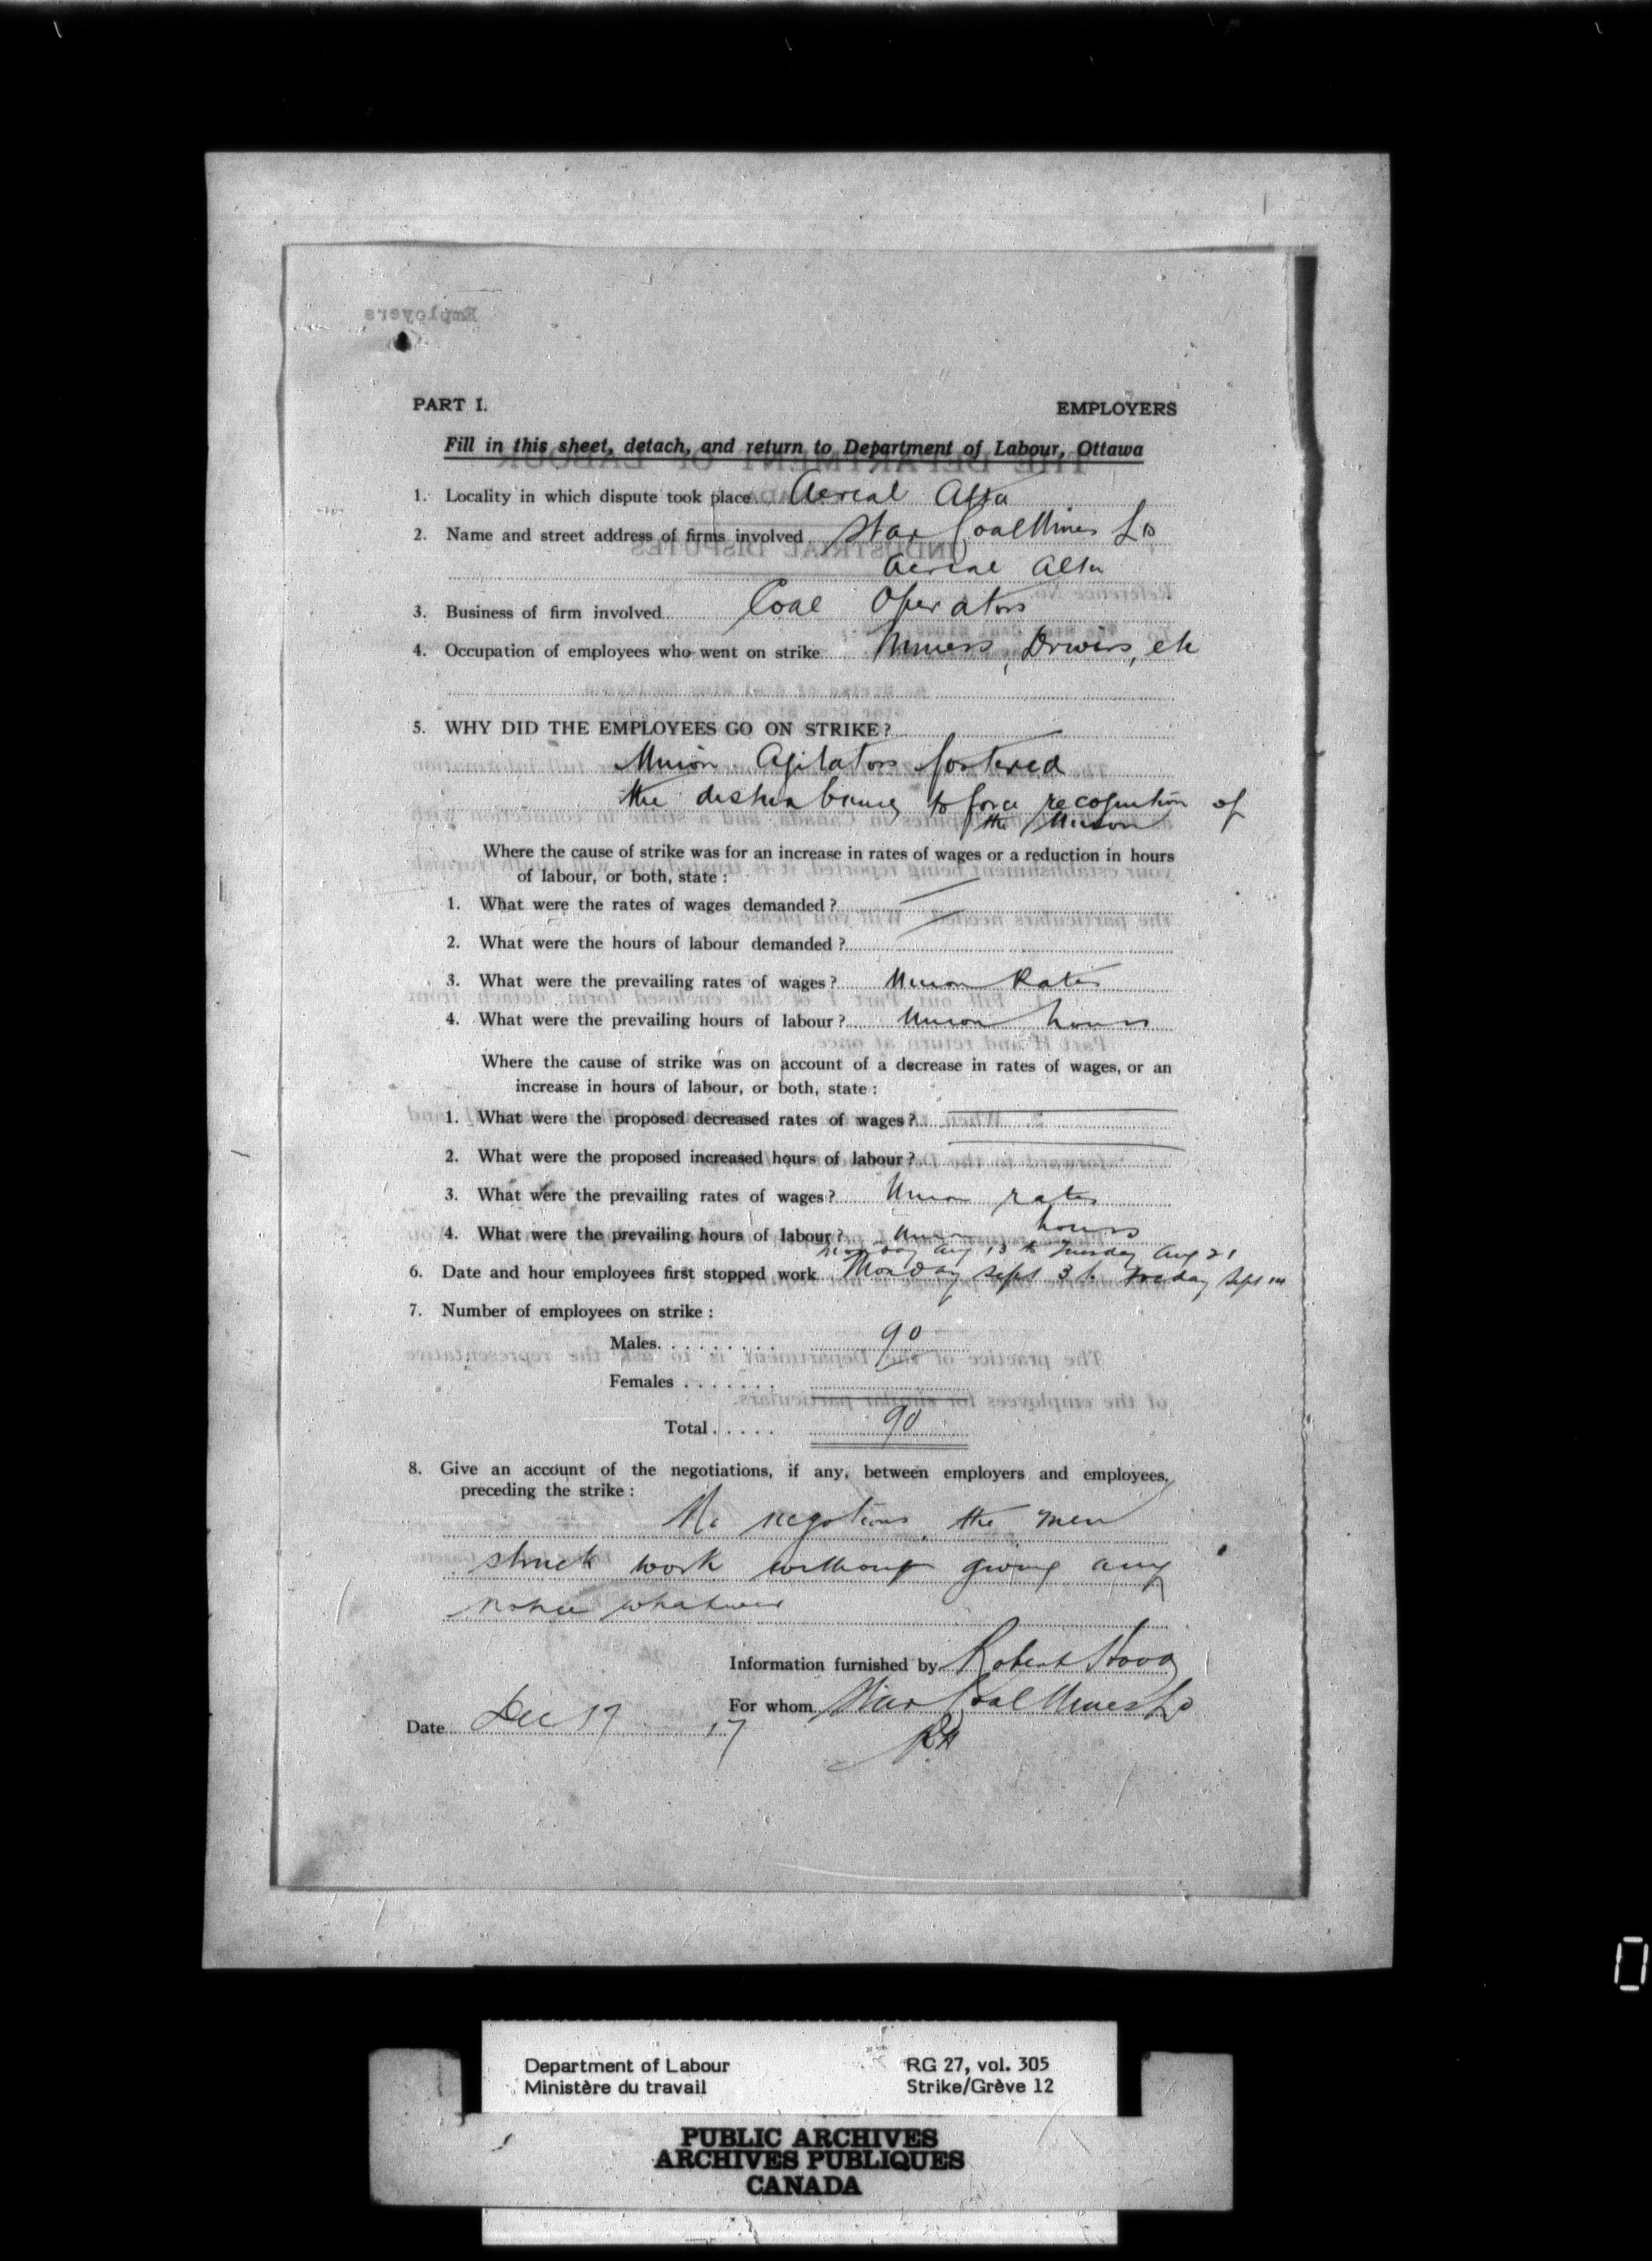 Employers
PART I.
EMPLOYERS
Fill in this sheet, detach, and return to Department of Labour, Ottawa
1. Locality in which dispute took place Aerial Alta
2. Name and street address of firms involved Star Coal Mines Ld
Aerial Alta
3. Business of firm involved Coal Operators
4. Occupation of employees who went on strike Miners, Drivers, etc
5. WHY DID THE EMPLOYEES GO ON STRIKE?
Union Agitators fostered
the disturbance to force recognition of
the Union
Where the cause of strike was for an increase in rates of wages or a reduction in hours
of labour, or both, state :
1. What were the rates of wages demanded ?
2. What were the hours of labour demanded ?
3. What were the prevailing rates of wages? Union Rates
4. What were the prevailing hours of labour? Union hours
Where the cause of strike was on account of a decrease in rates of wages, or an
increase in hours of labour, or both, state :
1. What were the proposed decreased rates of wages?
2. What were the proposed increased hours of labour?
3. What were the prevailing rates of wages? Union rates
4. What were the prevailing hours of labour? Union hours
Monday Aug 13 to Tuesday Aug 21
6. Date and hour employees first stopped work Monday Sept 3 to Friday Sept 14
7. Number of employees on strike :
Males 90
Females
Total 90
8. Give an account of the negotiations, if any, between employers and employees,
preceding the strike :
No negotions, the men
struck work without giving any
notice whatever
Information furnished by Robert
For whom Star Coal Mines Ld
Date Dec 17 17
RH
Department of Labour
Ministère du travail
RG 27, vol. 305
Strike/Grève 12
PUBLIC ARCHIVES
ARCHIVES PUBLIQUES
CANADA